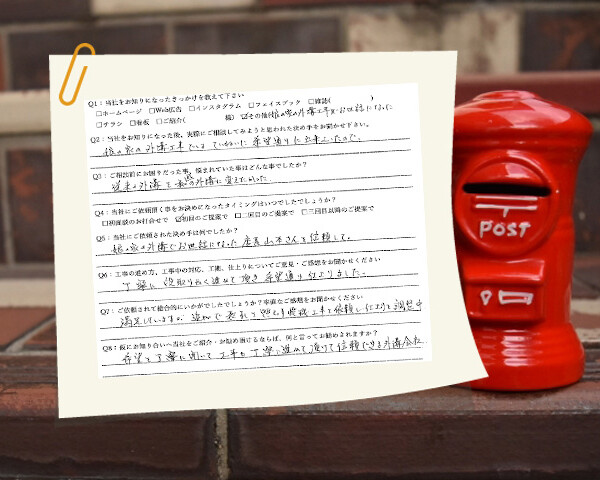 Q1：当社をお知りになったきっかけを教えて下さい
□ホームページ □Web広告 □インスタグラム □フェイスブック □雑誌( )
□チラシ □看板 □ご紹介( 様) ☑その他(娘の家の外構工事でお世話になった
Q2：当社をお知りになった後、実際にご相談してみようと思われた決め手をお聞かせ下さい。
娘の家の外構工事でていねいに希望通りに出来ていたので。
Q3：ご相談前にお困りだった事、悩まれていた事はどんな事でしたか？
従来の外構を の外構に変えたかった。
Q4：当社にご依頼頂く事をお決めになったタイミングはいつでしたでしょうか？
□初面談のお打合せで ☑初回のご提案で □二回目のご提案で □三回目以降のご提案で
Q5：当社にご依頼された決め手は何でしたか？
娘の家の外構でお世話になった 山本さんを信頼して。
Q6：工事の進め方、工事中の対応、工期、仕上りについてご意見・ご感想をお聞かせください
丁寧に段取り良く進めて頂き希望通り仕上りました。
Q7：ご依頼されて総合的にいかがでしたでしょうか？率直なご感想をお聞かせください
満足していますが 追加で 工事を依頼し
Q8：仮にお知り合いへ当社をご紹介・お勧め頂けるならば、何と言ってお勧めされますか？
希望を丁寧に聞いて工事も丁寧に進めて頂けて信頼できる外構会社
POST